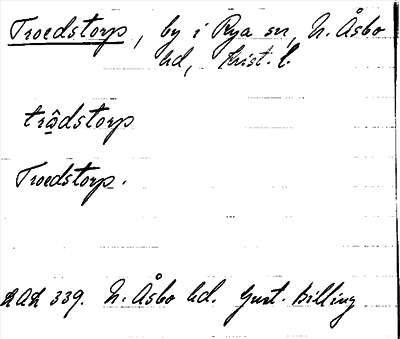 Troedstorp, by i Rya sn, N. Åsbo
hd, Krist. l.
trå̂dstorp
Troedstorp.
N. Åsbo hd. Gust. Billing